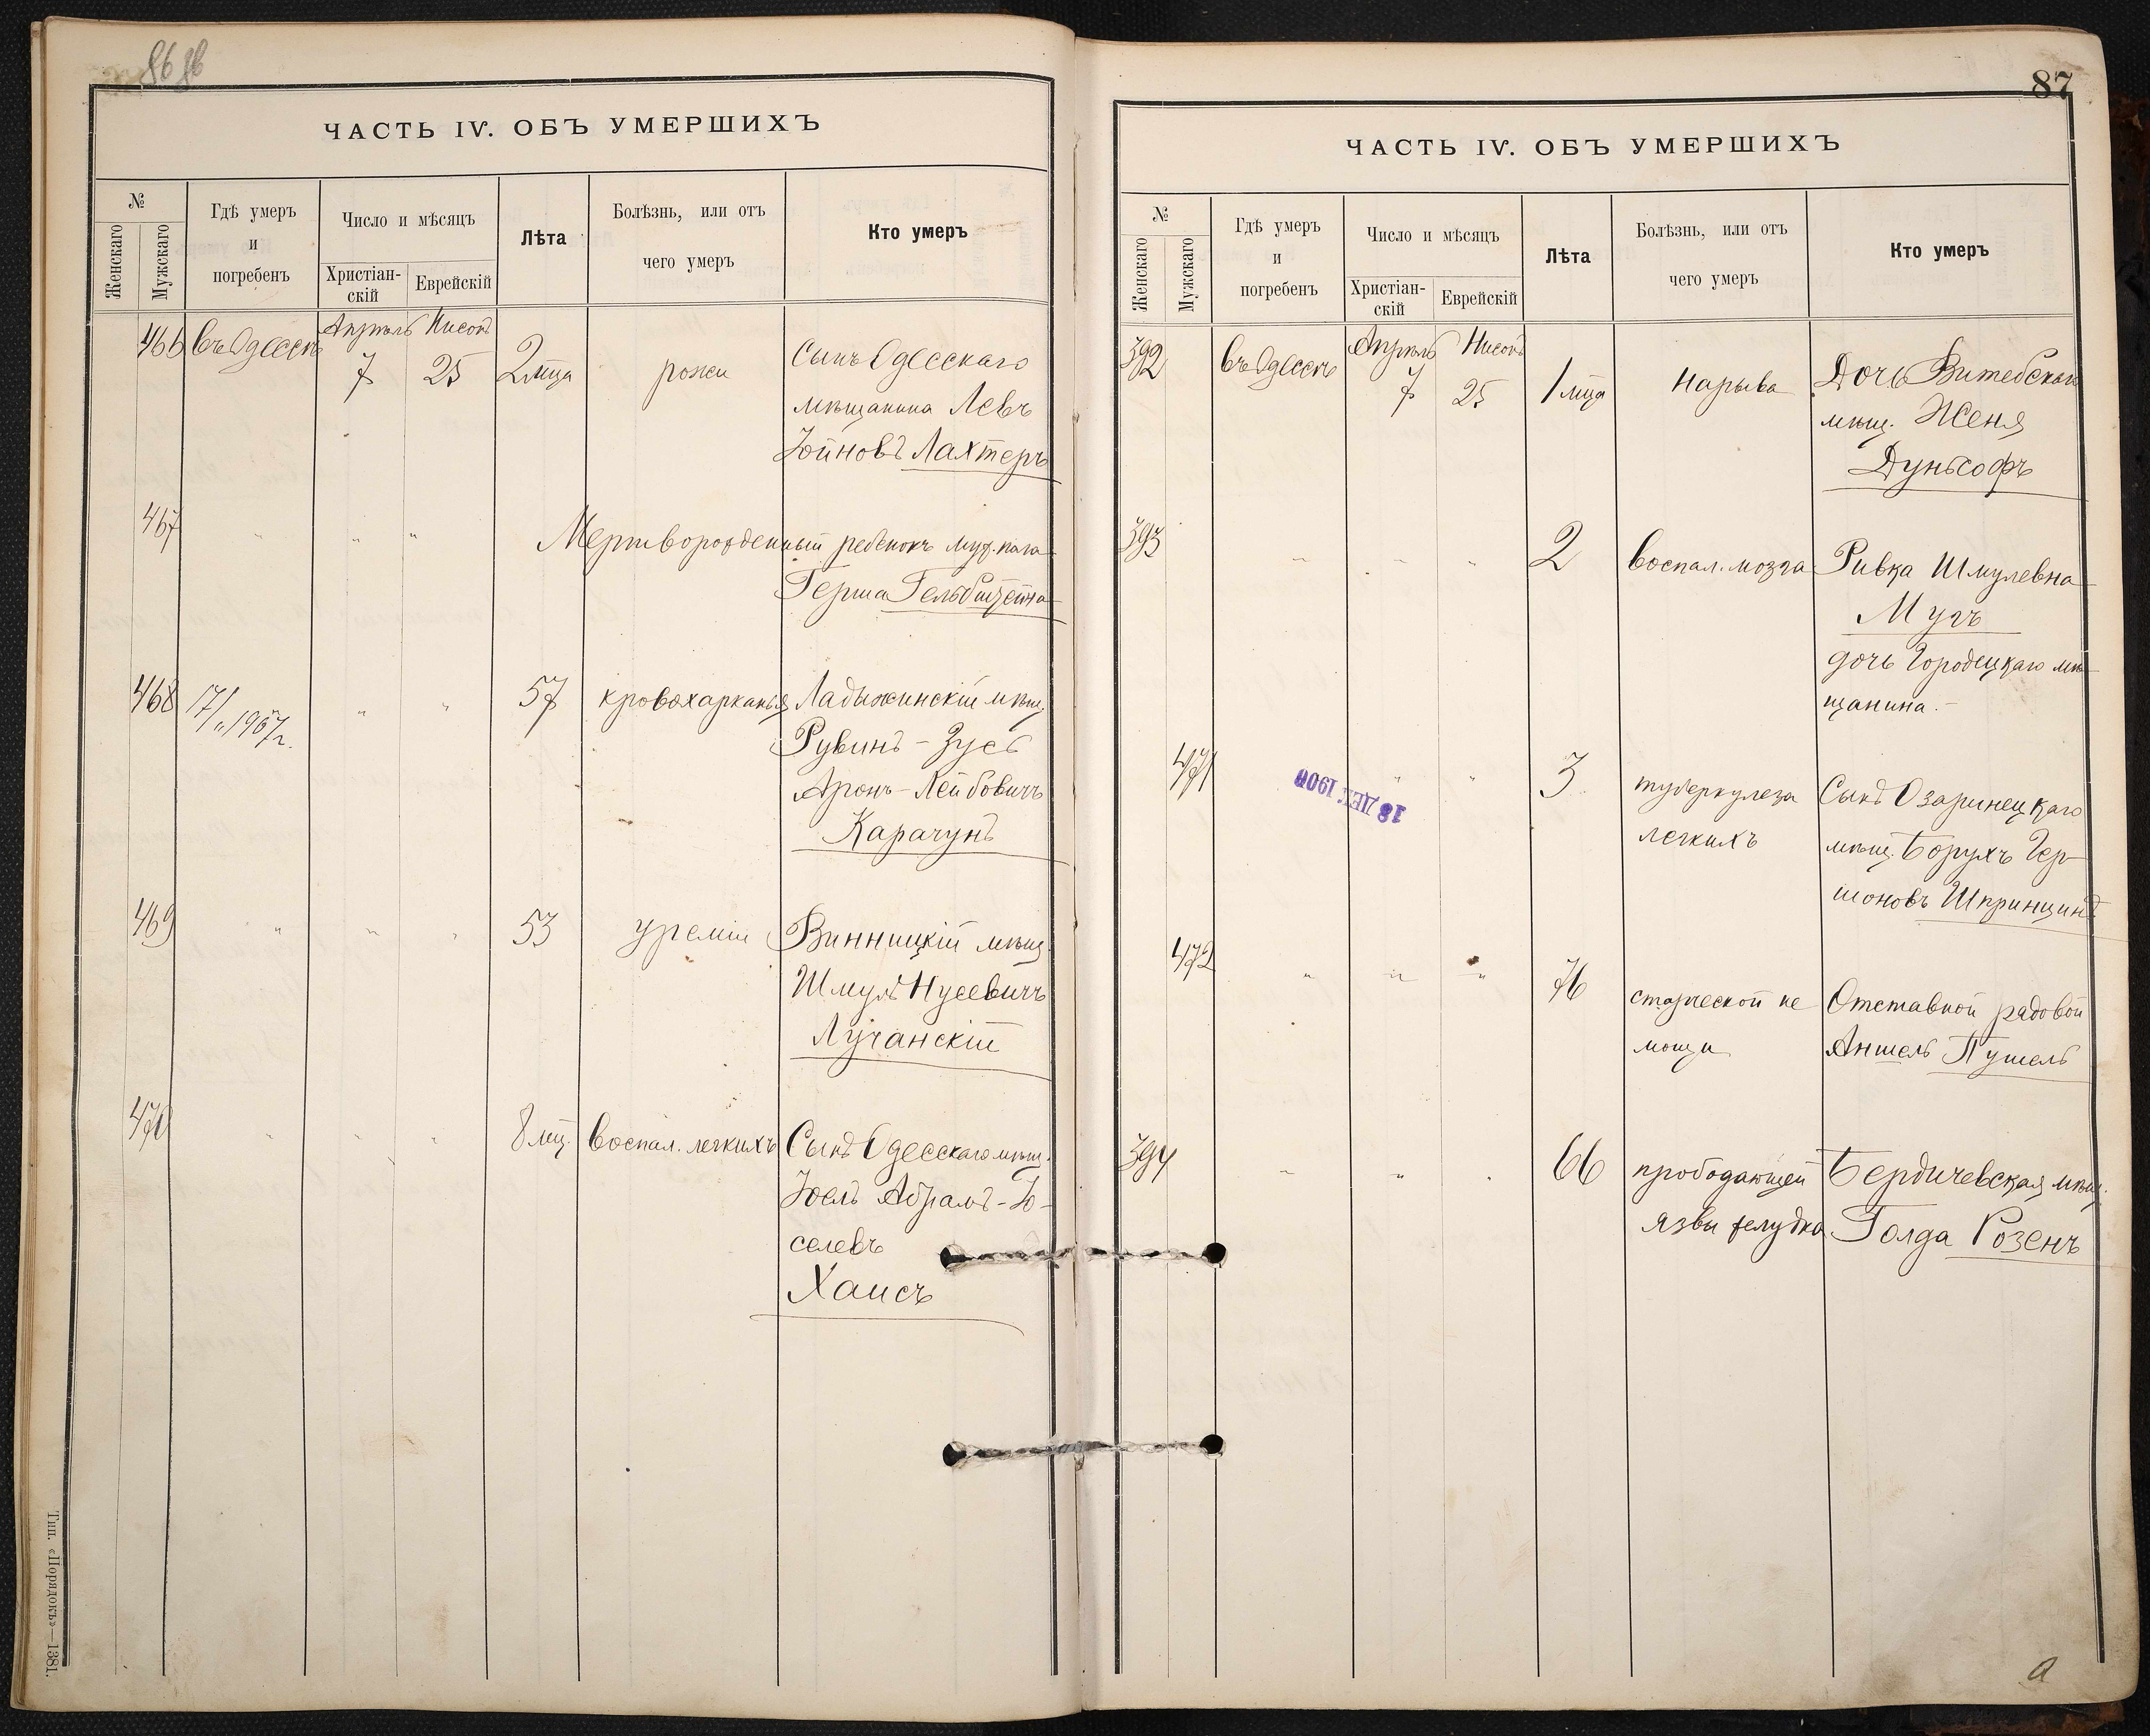 86 86
ЧАСТЬ IV. ОБЪ УМЕРШИХЪ
№
Женскаго
Мужскаго
Гдѣ умеръ
и
погребенъ
Число и мѣсяцъ
Христіан-
скій
Еврейскій
Лѣта
Болѣзнь, или отъ
чего умеръ
Кто умеръ
466 въ Одессѣ Апрѣль Нисонъ
7 25 2 мца рожи Сынъ Одесскаго
мѣщанина Левъ
Іойновъ Лахтеръ
467 " " " Мертворожденный ребенокъ муж. пола
Герша Гельбштейна
468 17/11 1907 г. " " 57 кровохарканья Ладыжинскій мѣщ.
Рувинъ-Зусь
Аронъ-Лейбовичъ
Карачунъ
469 " " " 53 уреміи Винницкій мѣщ.
Шмуль Нусевичъ
Лучанскій
470 " " " 8 мц. воспал. легкихъ Сынъ Одесскаго мѣщ.
Іоель Абрамъ-Іо-
селевъ
Хаисъ
Тип. «Порядокъ»—1381.
87
ЧАСТЬ IV. ОБЪ УМЕРШИХЪ
№
Женскаго
Мужскаго
Гдѣ умеръ
и
погребенъ
Число и мѣсяцъ
Христіан-
скій
Еврейскій
Лѣта
Болѣзнь, или отъ
чего умеръ
Кто умеръ
392 въ Одессѣ Апрѣль Нисонъ
7 25 1 мца Нарыва Дочь Витебскаго
мѣщ. Женя
Дуньсофъ
393 " " " 2 воспал. мозга Ривка Шмулевна
Мугъ
дочь Городецкаго мѣ-
щанина.
471 18 ДЕК 1900 " " 3 туберкулеза Сынъ Озаринецкаго
легкихъ мѣщ. Борухъ Гер-
шоновъ Шпринцинъ
472 " " " 76 старческой не Отставной рядовой
мощи Аншель Пушель
394 " " " 66 прободающей Бердичевская мѣщ.
язвы желудка Голда Розенъ
a